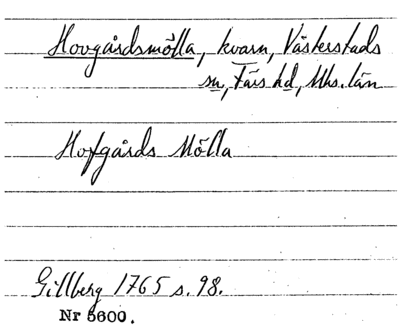 Hovgårdsmölla, kvarn, Västerstads
sn, Färs hd, Mhs. län
Hofgårds Mölla
Gillberg 1765 s. 98.
Nr 5600.